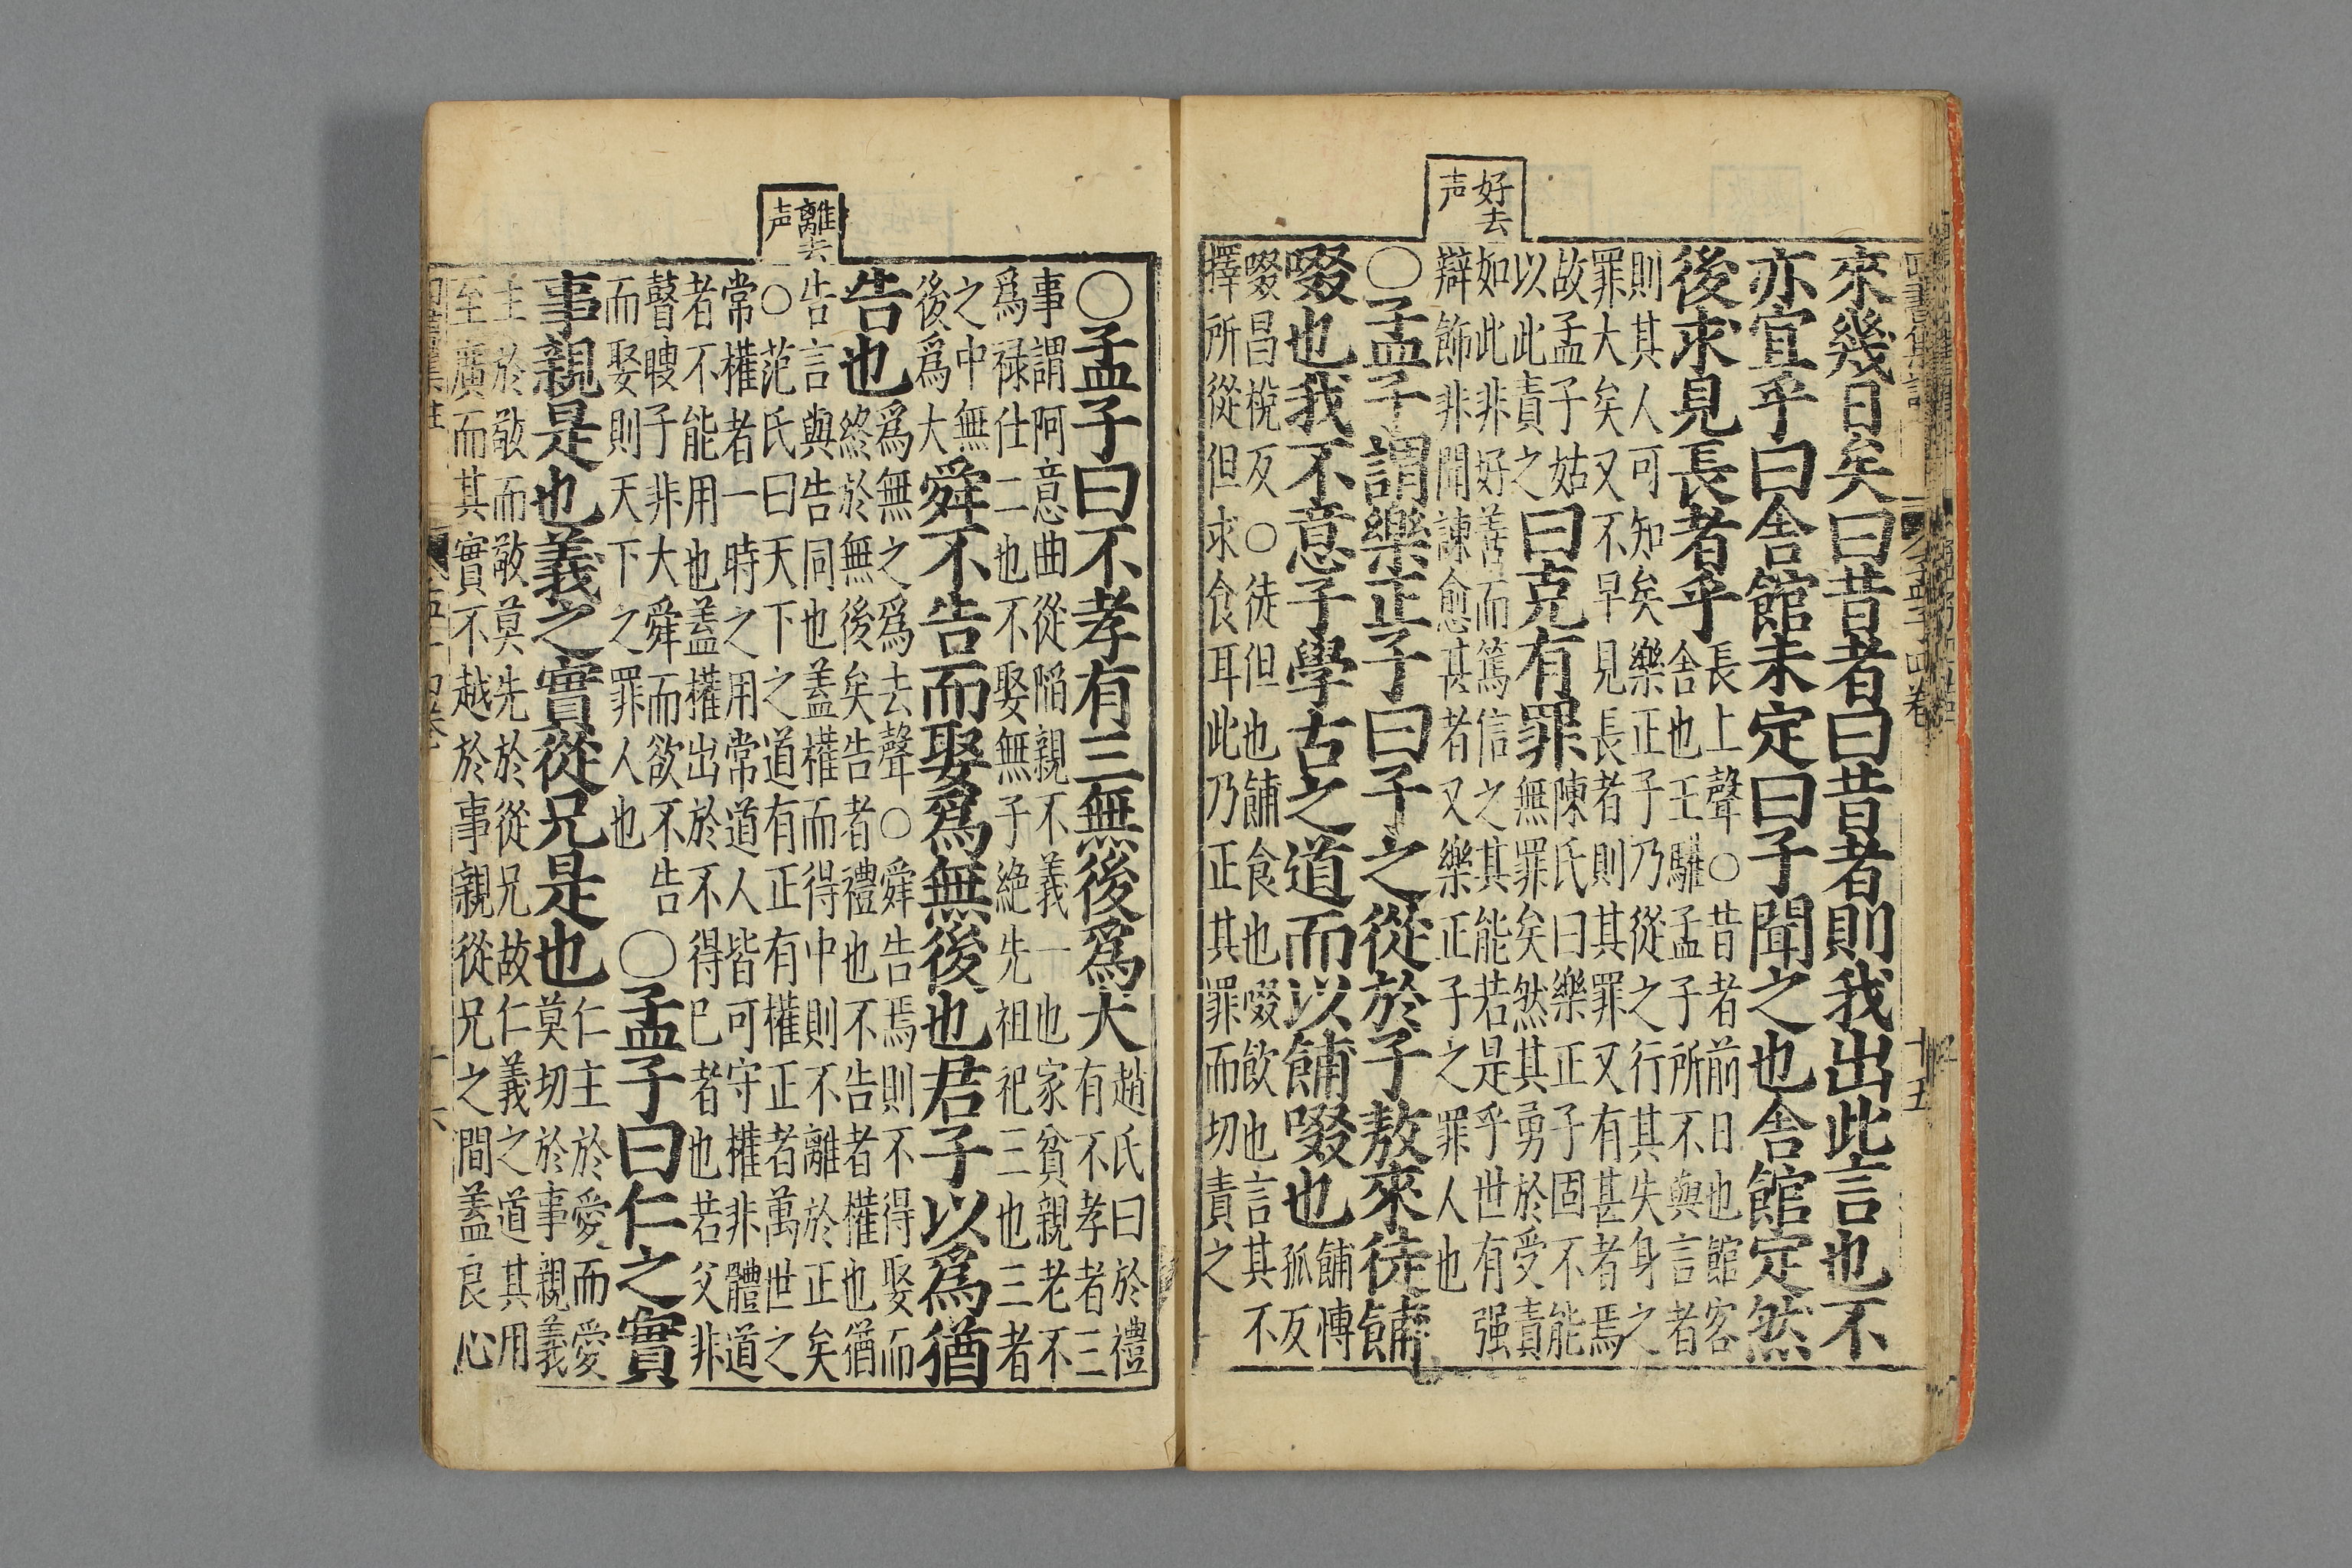 四書集註 孟子四卷 十五
好去
声
來幾日矣曰昔者曰昔者則我出此言也不
亦宜乎曰舍館未定曰子聞之也舍館定然
後求見長者乎
長上聲○昔者前日也館客
舍也王驩孟子所不與言者
則其人可知矣樂正子乃從之行其失身之
罪大矣又不早見長者則其罪又有甚者焉
故孟子姑
以此責之
曰克有罪
陳氏曰樂正子固不能
無罪矣然其勇於受責
如此非好善而篤信之其能若是乎世有强
辯飾非聞諫愈甚者又樂正子之罪人也
○孟子謂樂正子曰子之從於子敖來徒餔
啜也我不意子學古之道而以餔啜也
餔慱
孤反
啜昌梲反○徒但也餔食也啜飲也言其不
擇所從但求食耳此乃正其罪而切責之
離去
声
○孟子曰不孝有三無後爲大
趙氏曰於禮
有不孝者三
事謂阿意曲從陷親不義一也家貧親老不
爲祿仕二也不娶無子絶先祖祀三也三者
之中無
後爲大
舜不告而娶爲無後也君子以爲猶
告也
爲無之爲去聲○舜告焉則不得娶而
終於無後矣告者禮也不告者權也猶
告言與告同也蓋權而得中則不離於正矣
○范氏曰天下之道有正有權正者萬世之
常權者一時之用常道人皆可守權非體道
者不能用也蓋權出於不得已者也若父非
瞽瞍子非大舜而欲不告
而娶則天下之罪人也
○孟子曰仁之實
事親是也義之實從兄是也
仁主於愛而愛
莫切於事親義
主於敬而敬莫先於從兄故仁義之道其用
至廣而其實不越於事親從兄之間蓋良心
十六